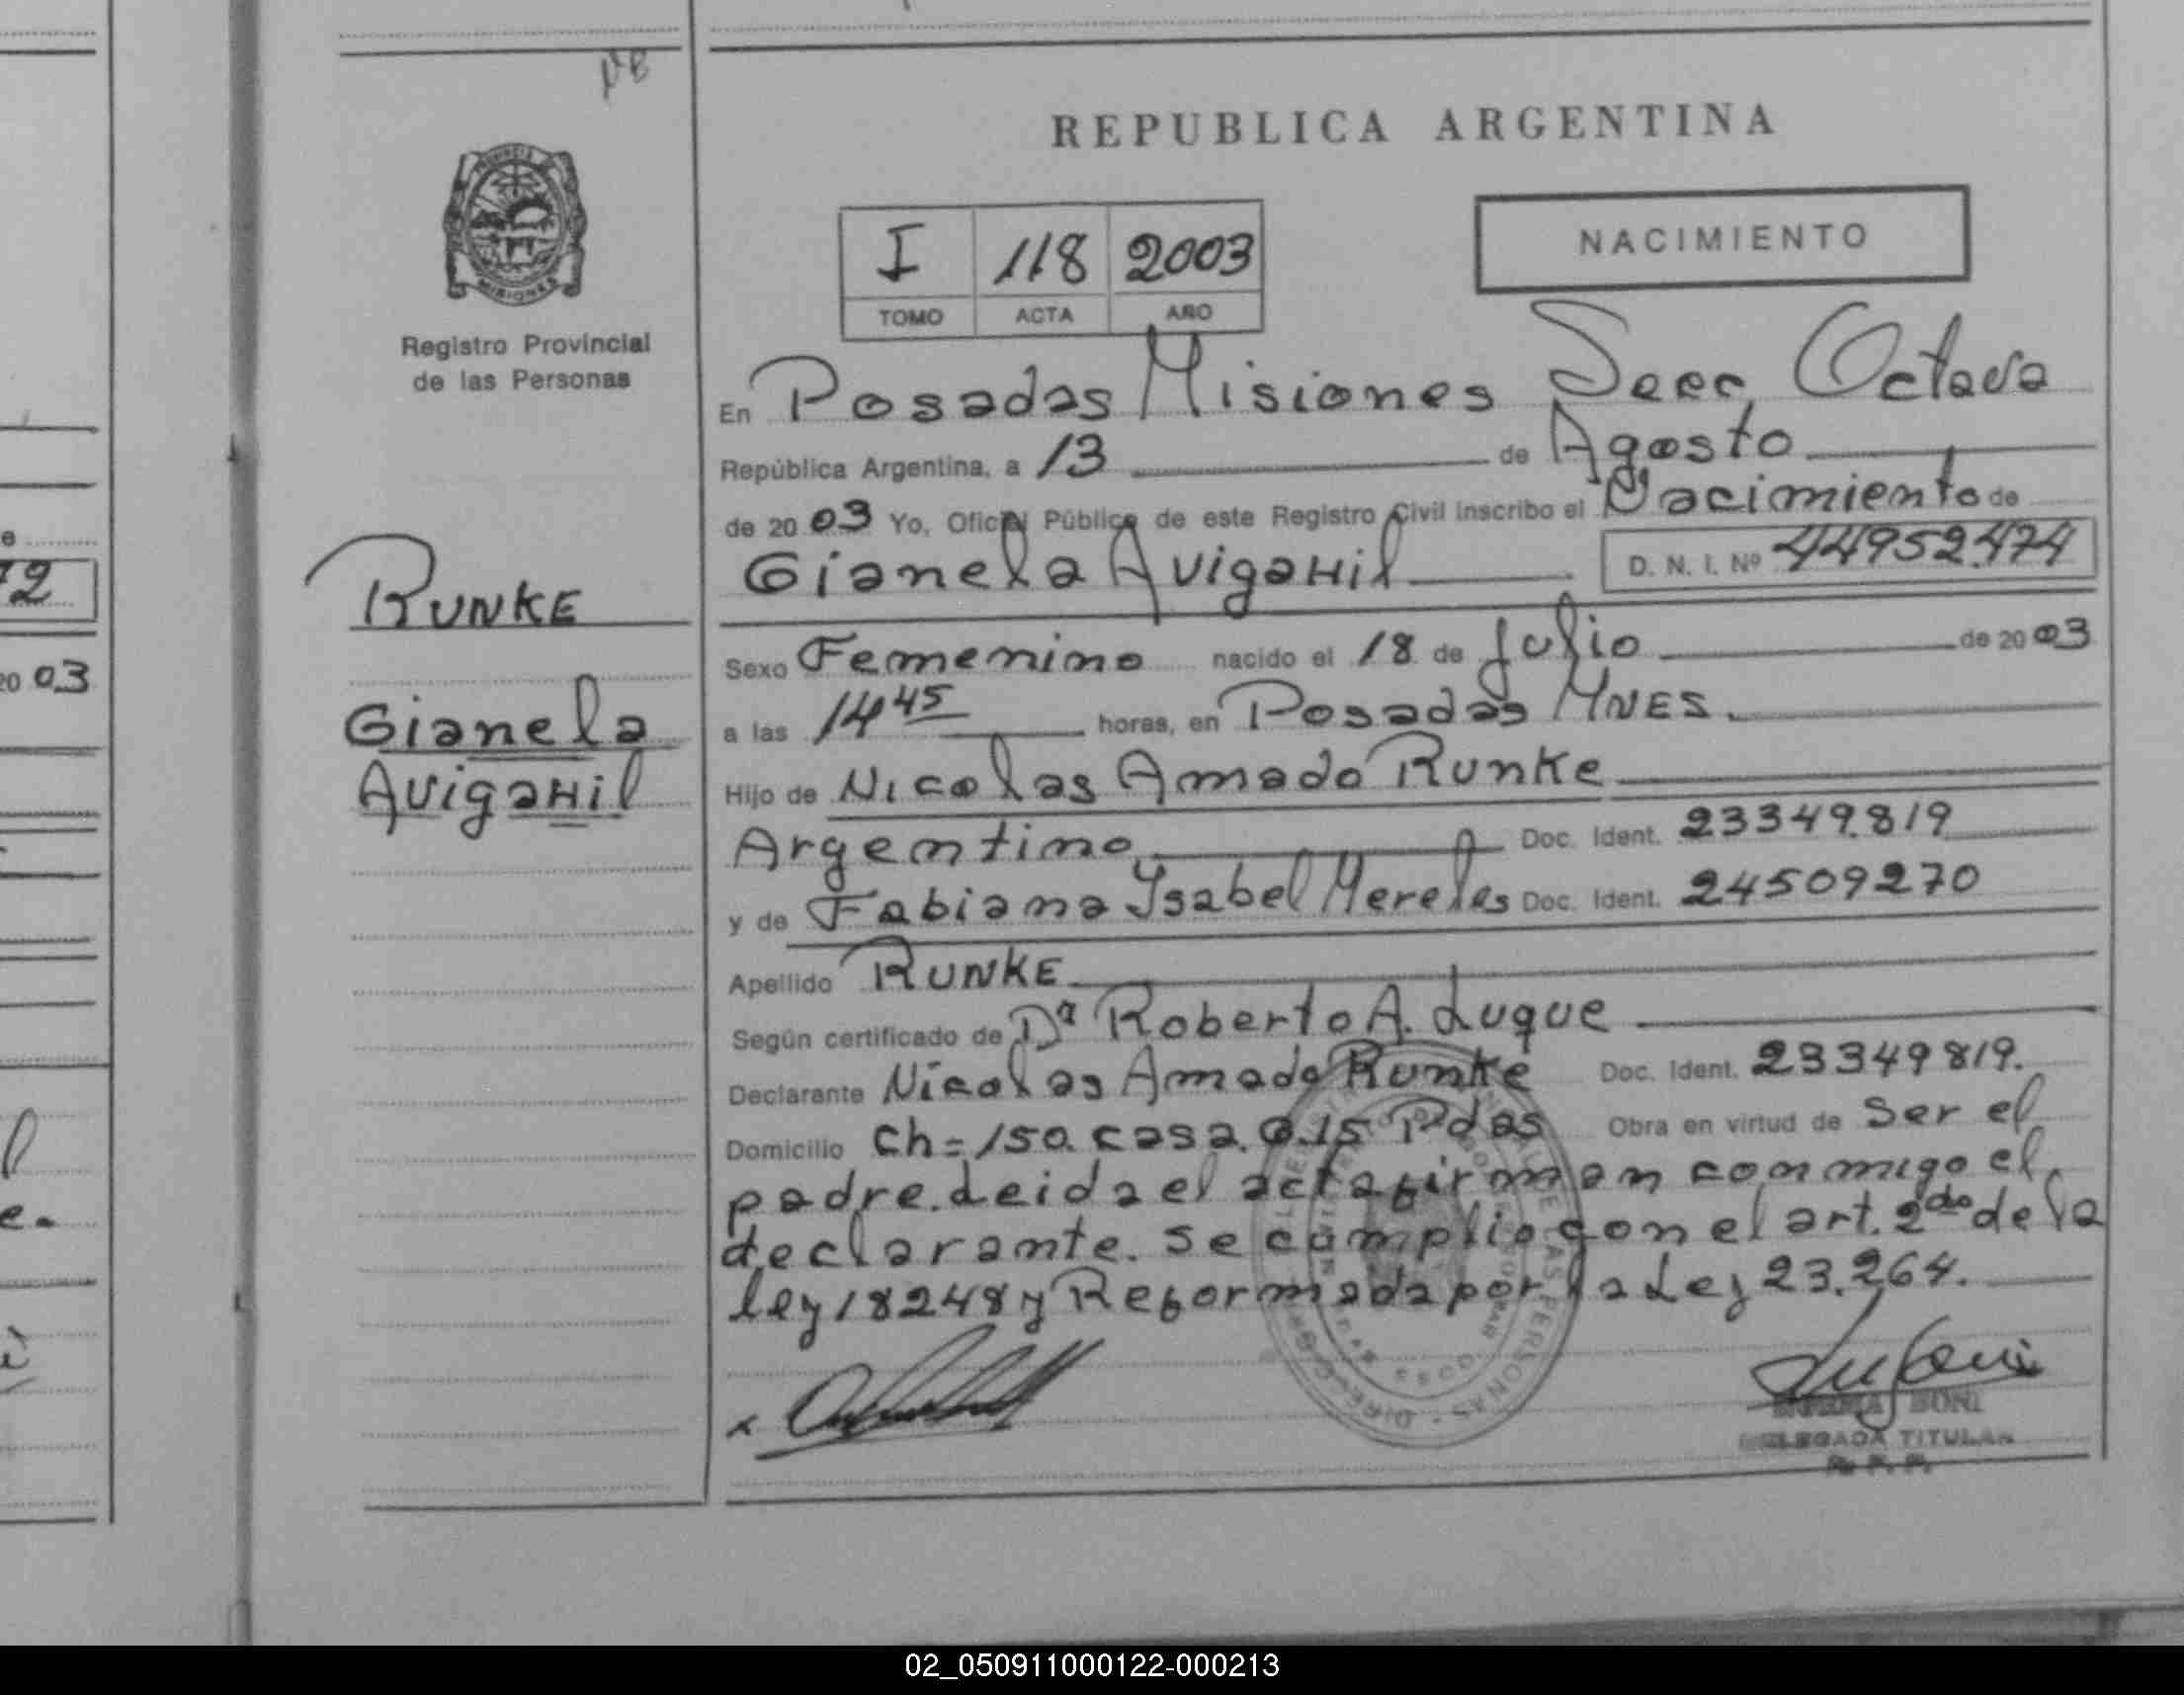 REPUBLICA ARGENTINA
NACIMIENTO
I 118 2003
TOMO ACTA AÑO
Registro Provincial
de las Personas
RUNKE
Gianela
AvigaHil
En Posadas Misiones Secc. Octava
República Argentina, a 13 de Agosto
de 20 03 Yo, Oficial Público de este Registro Civil inscribo el Nacimiento de
Gianela AvigaHil D. N. I. Nº 44952.474
Sexo Femenino nacido el 18 de Julio de 20 03
a las 14 45 horas, en Posadas MNES.
Hijo de Nicolas Amado Runke
Argentino Doc. Ident. 23349.819
y de Fabiana Ysabel Mereles Doc. Ident. 24509270
Apellido RUNKE
Según certificado de Dª Roberto A. Luque
Declarante Nicolas Amado Runke Doc. Ident. 23349819.
Domicilio Ch=150. casa. 015 Pdas Obra en virtud de Ser el
padre. Leida el acta firman conmigo el
declarante. Se cumplio con el art. 2do de la
ley 18248 y Reformada por la Ley 23.264.
BONI
DELEGADA TITULAR
R. P. P.
02_050911000122-000213